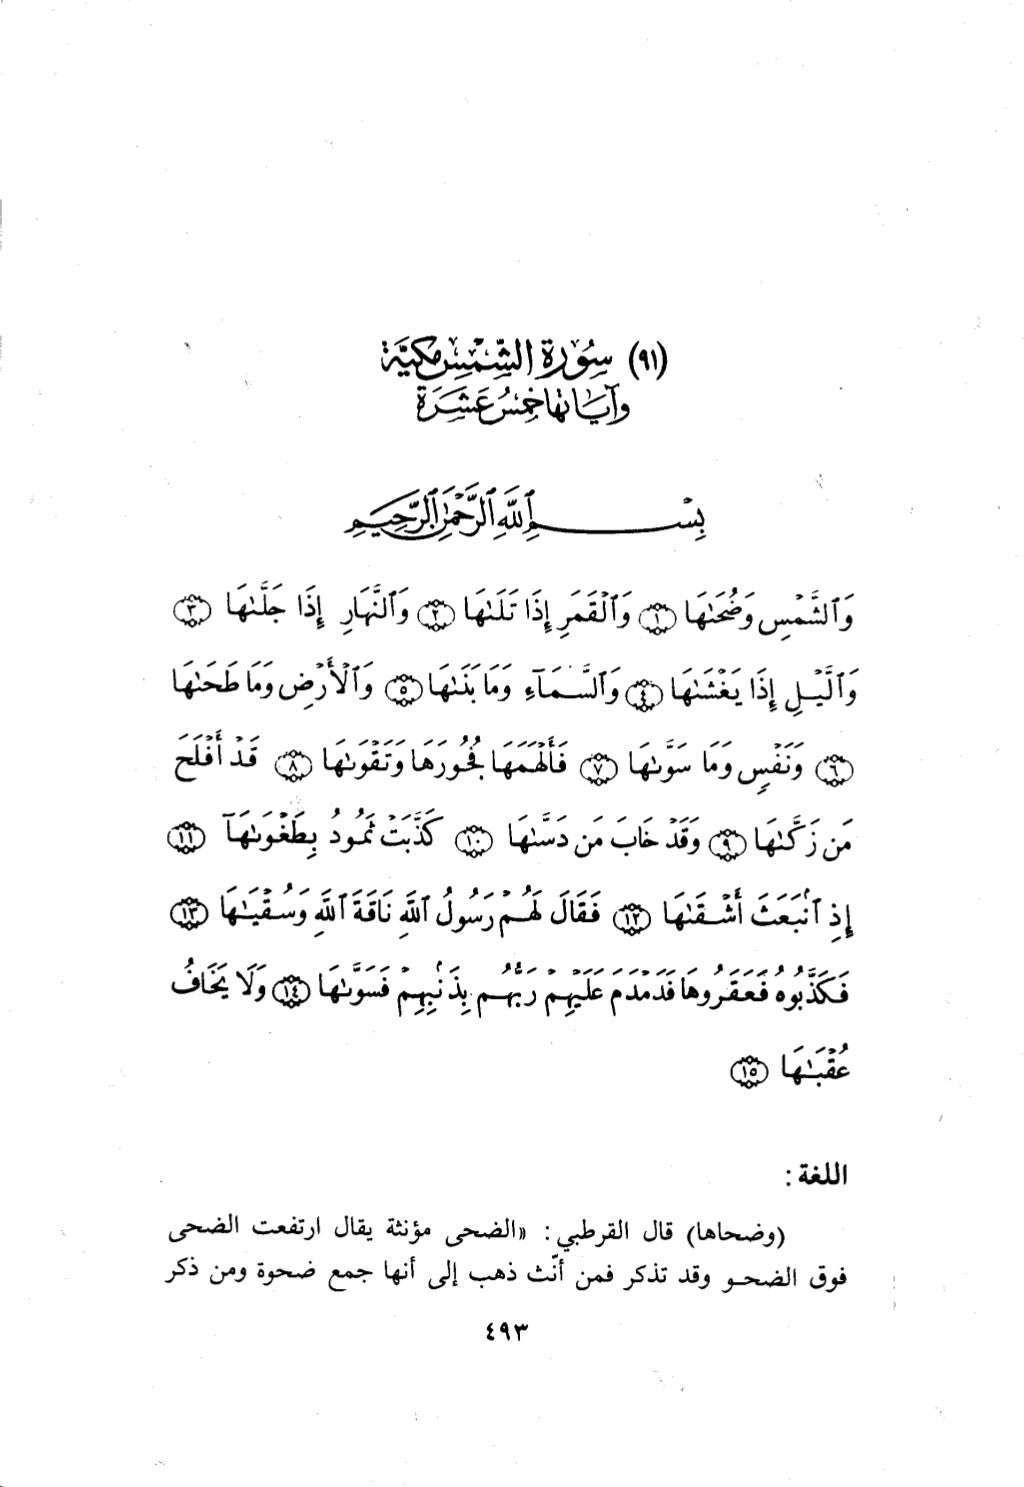 (٩١) سُورَةُ الشَّمْسِ مَكِيَّة
وَآيَاتُهَا خَمْسُ عَشَرَة
بِسْمِ ٱللَّهِ ٱلرَّحْمَٰنِ ٱلرَّحِيمِ
وَٱلشَّمْسِ وَضُحَىٰهَا ١ وَٱلْقَمَرِ إِذَا تَلَىٰهَا ٢ وَٱلنَّهَارِ إِذَا جَلَّىٰهَا ٣
وَٱلَّيْلِ إِذَا يَغْشَىٰهَا ٤ وَٱلسَّمَآءِ وَمَا بَنَىٰهَا ٥ وَٱلْأَرْضِ وَمَا طَحَىٰهَا
٦ وَنَفْسٍ وَمَا سَوَّىٰهَا ٧ فَأَلْهَمَهَا فُجُورَهَا وَتَقْوَىٰهَا ٨ قَدْ أَفْلَحَ
مَن زَكَّىٰهَا ٩ وَقَدْ خَابَ مَن دَسَّىٰهَا ١٠ كَذَّبَتْ ثَمُودُ بِطَغْوَىٰهَآ ١١
إِذِ ٱنۢبَعَثَ أَشْقَىٰهَا ١٢ فَقَالَ لَهُمْ رَسُولُ ٱللَّهِ نَاقَةَ ٱللَّهِ وَسُقْيَٰهَا ١٣
فَكَذَّبُوهُ فَعَقَرُوهَا فَدَمْدَمَ عَلَيْهِمْ رَبُّهُم بِذَنۢبِهِمْ فَسَوَّىٰهَا ١٤ وَلَا يَخَافُ
عُقْبَٰهَا ١٥
اللغة :
(وضحاها) قال القرطبي : «الضحى مؤنثة يقال ارتفعت الضحى
فوق الضحو وقد تذكر فمن أنّث ذهب إلى أنها جمع ضحوة ومن ذكر
٤٩٣